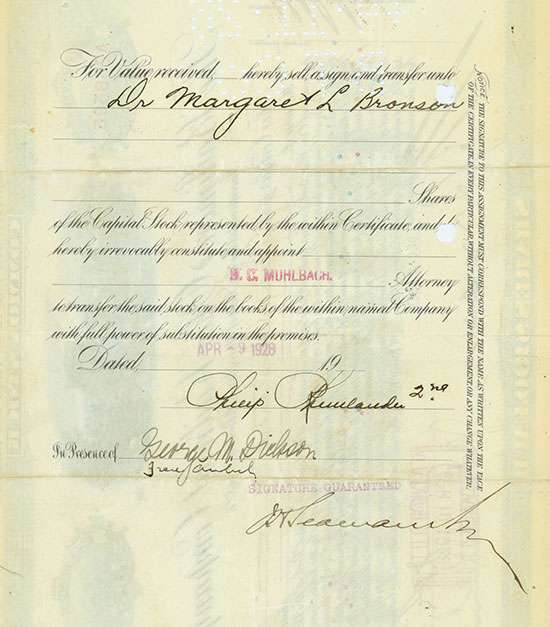 For Value received, hereby sell, assign and transfer unto
Dr Margaret L Bronson
Shares
of the Capital Stock represented by the within Certificate, and do
hereby irrevocably constitute and appoint
MUHLBACH.
Attorney
to transfer the said stock on the books of the within named Company
with full power of substitution in the premises.
Dated, 19
APR - 9 1928
Philip Rhinelander 2nd
In Presence of George M. Dickson
SIGNATURE GUARANTEED
NOTICE THE SIGNATURE TO THIS ASSIGNMENT MUST CORRESPOND WITH THE NAME AS WRITTEN UPON THE FACE
OF THE CERTIFICATE, IN EVERY PARTICULAR, WITHOUT ALTERATION OR ENLARGEMENT OR ANY CHANGE WHATEVER.